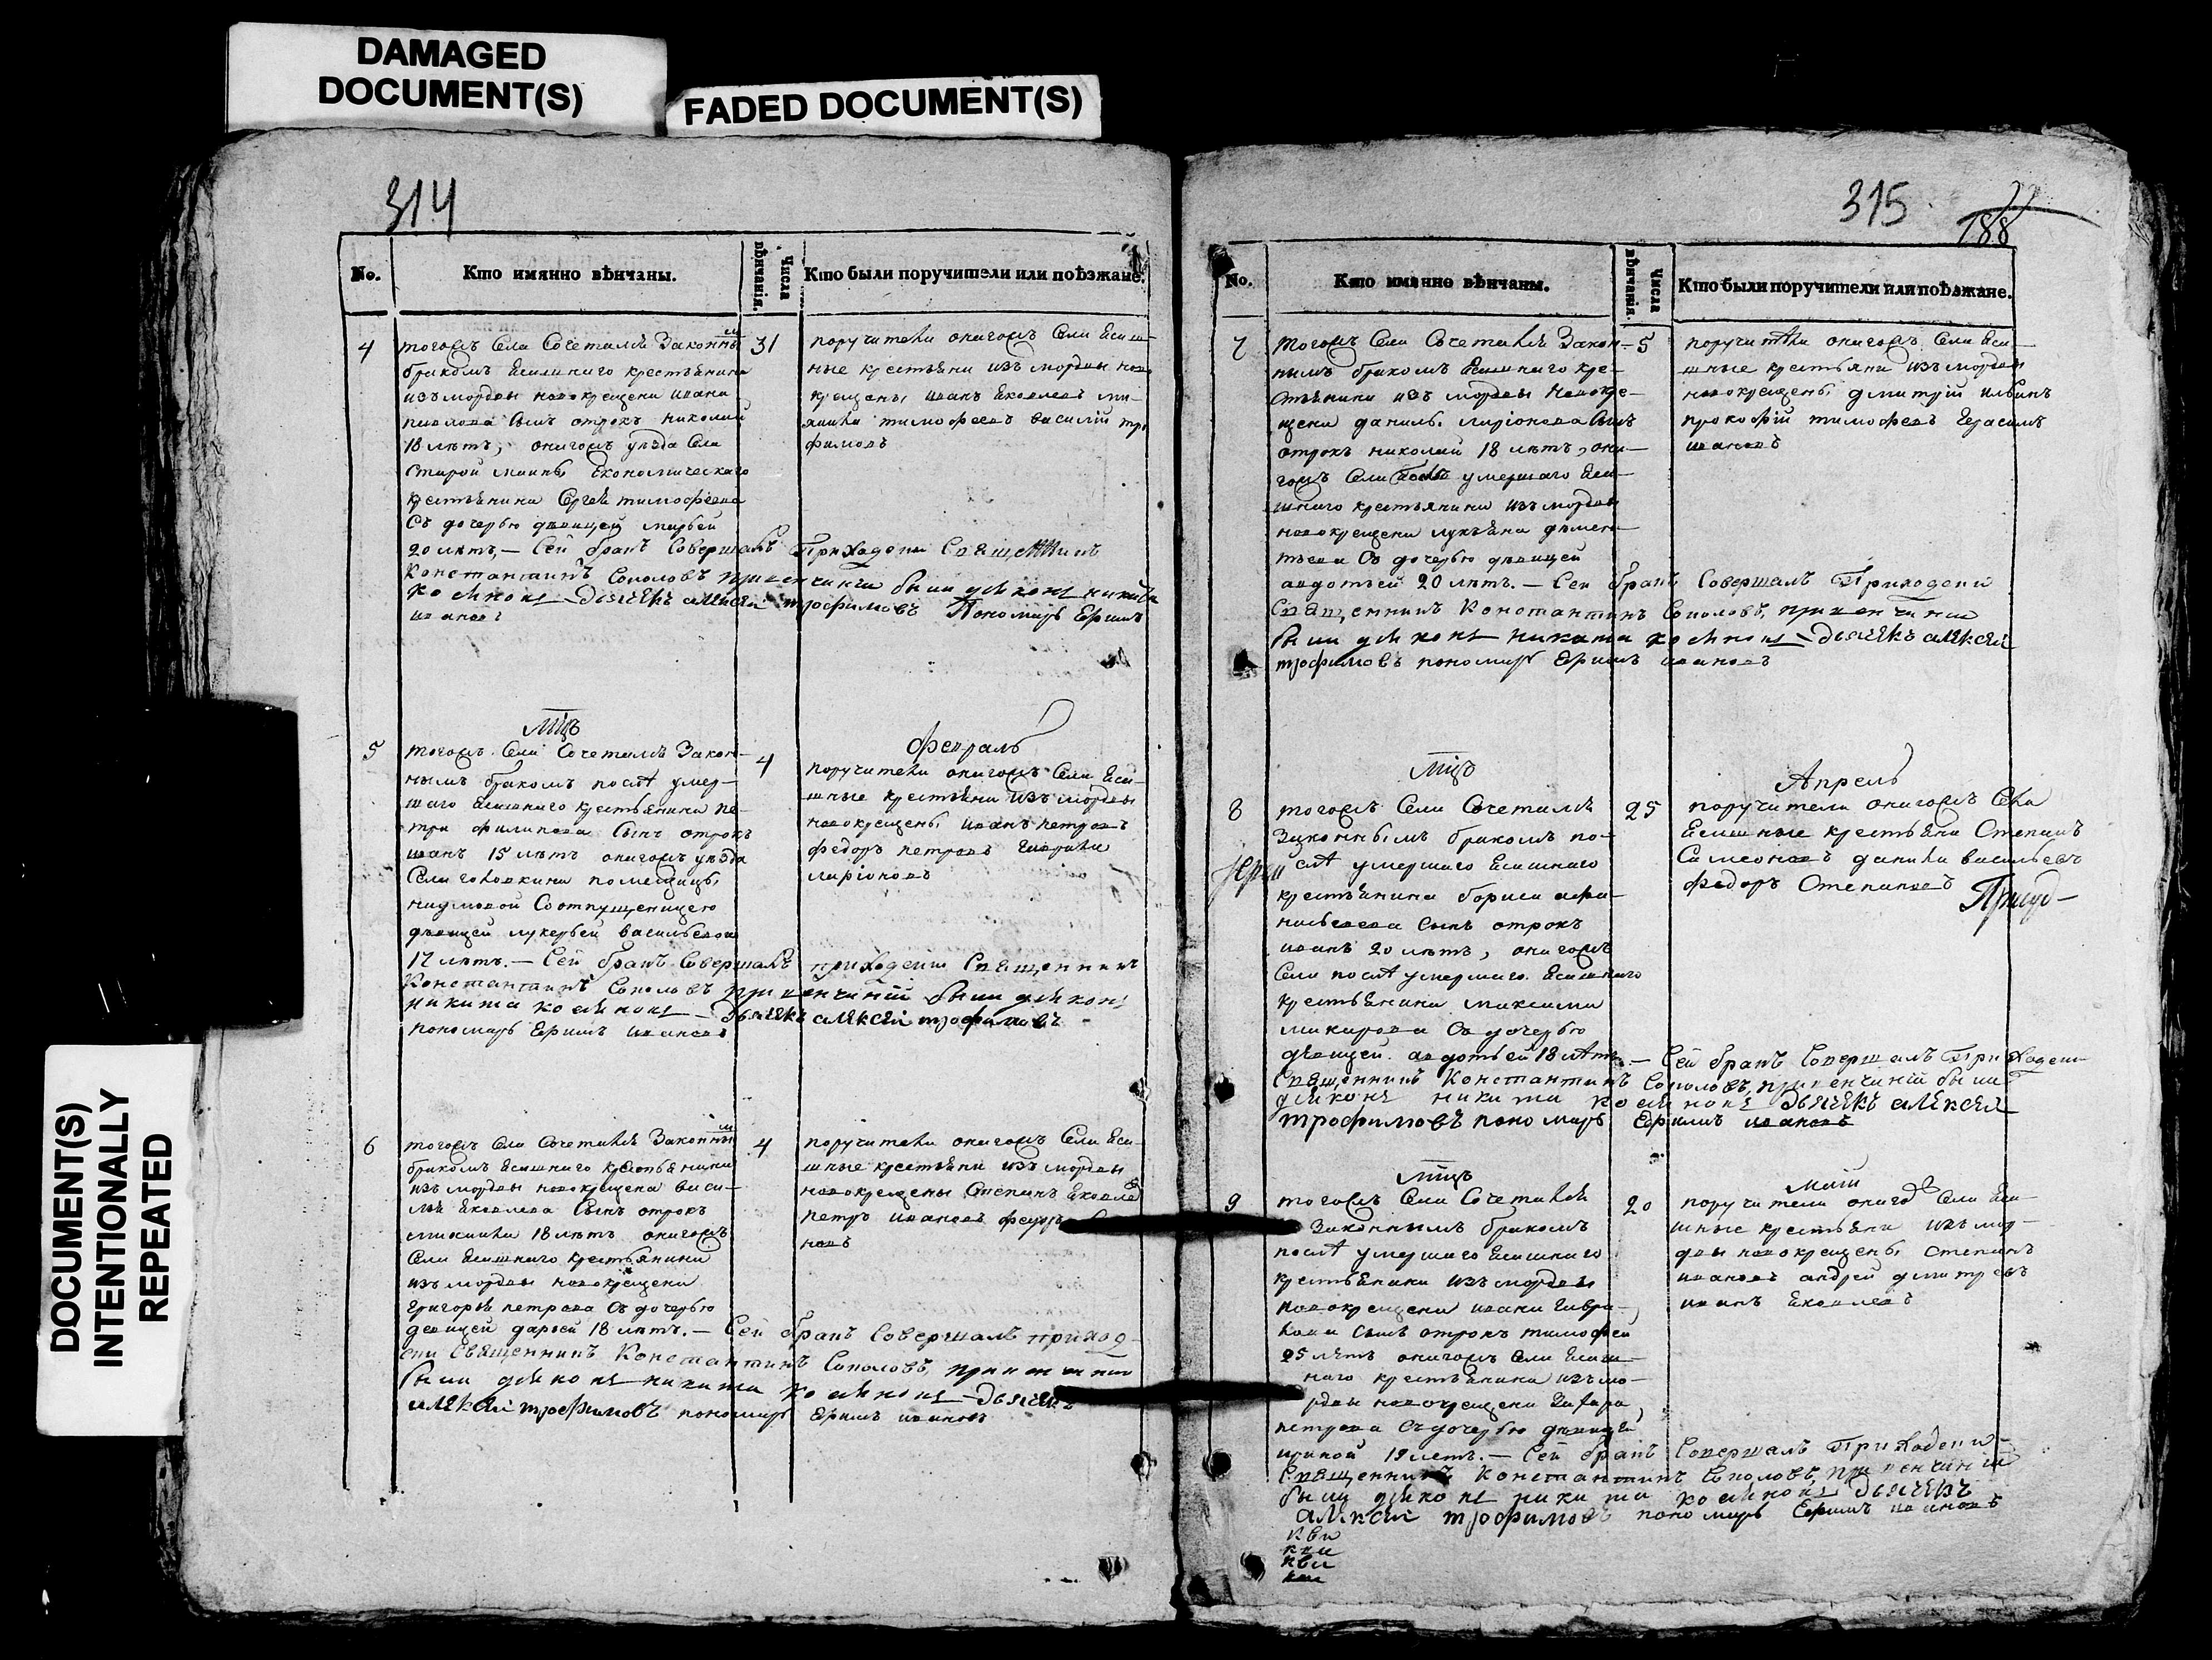 DAMAGED
DOCUMENT(S)
FADED DOCUMENT(S)
DOCUMENT(S)
INTENTIONALLY
REPEATED
314
No.
Кто имянно вѣнчаны.
Числа вѣнчанія.
Кто были поручители или поѣзжане.
4
тогожъ Села Сочетался Законнымъ
бракомъ Ясашнаго крестьянина
изъ мордвы новокрещена ивана
павлова сынъ отрокъ николай
18 лѣтъ, оногожъ уѣзда Села
Старой маины Економическаго
крестьянина Сергея тимофеева
Съ дочерью девицей марьей
20 лѣтъ, — Сей бракъ Совершалъ Приходски Священникъ
Константинъ Соколовъ при венчании были диаконъ никита
Дьячекъ алексей трофимовъ Пономарь Ефимъ
ивановъ
31
поручители оногожъ Села Ясаш-
ные крестьяни изъ мордвы ново
крещены иванъ Яковлевъ ми-
хайла тимофеевъ василий тро
фимовъ
Мцъ
Февраль
5
тогожъ Села Сочетался Закон-
нымъ бракомъ после умер-
шаго Ясашнаго крестьянина пе-
тра филипова Сынъ отрокъ
иванъ 15 лѣтъ оногожъ уѣзда
Села головкина помещицы
Соотпущеницею
девицей лукерьей васильевой
17 лѣтъ. — Сей бракъ Совершалъ приходски Священникъ
Константинъ Соколовъ при венчаний были диаконъ
никита Дьячекъ алексей трофимовъ
пономарь Ефимъ ивановъ
4
поручители оногожъ Села Яса-
шные крестьяни изъ мордвы
новокрещены иванъ петровъ
федоръ петровъ гаврила
ларионовъ
6
тогожъ Села Сочетался Законнымъ
бракомъ Ясашнаго крестьянина
изъ мордвы новокрещена васи-
лья Яковлева Сынъ отрокъ
михайла 18 лѣтъ оногожъ
Села Ясашнаго крестьянина
изъ мордвы новокрещена
григорья петрова Съ дочерью
девицей дарьей 18 лѣтъ. — Сей бракъ Совершалъ приход-
ски Священникъ Константинъ Соколовъ, при венчании
были диаконъ никита Дьячекъ
алексей трофимовъ пономарь Ефимъ ивановъ
4
поручители оногожъ Села Яса-
шные крестьяни изъ мордвы
новокрещены Степанъ Яковлевъ
петръ ивановъ федоръ
новъ
315
188
No.
Кто имянно вѣнчаны.
Числа вѣнчанія.
Кто были поручители или поѣзжане.
7
тогожъ Села Сочетался Закон-
нымъ бракомъ Ясашнаго кре-
стьянина изъ мордвы Новокре-
щена данилы лариюнова Сынъ
отрокъ николай 18 лѣтъ, оно-
гожъ Села после умершаго Яса-
шнаго крестьянина изъ мордвы
новокрещена лукьяна демен-
тьева Съ дочерью девицей
авдотьей 20 лѣтъ. — Сей бракъ Совершалъ Приходски
Священникъ Константинъ Соколовъ, при венчании
были диаконъ никита Дьячекъ алексей
трофимовъ пономарь Ефимъ ивановъ
5
поручители оногожъ Села Яса-
шные крестьяни изъ мордвы
новокрещены дмитрий ильинъ
прокофий тимофеевъ Герасимъ
ивановъ
Мцъ
Апрель
8
тогожъ Села Сочетался
Законнымъ бракомъ по-
сля умершаго Ясашнаго
крестьянина бориса афа-
насьева Сынъ отрокъ
иванъ 20 лѣтъ, оногожъ
Села после умершаго Ясашнаго
крестьянина максима
макарова Съ дочерью
девицей авдотьей 18 лѣтъ. — Сей бракъ Совершалъ Приходски
Священникъ Константинъ Соколовъ, при венчаний были
диаконъ никита Дьячекъ алексей
трофимовъ пономарь Ефимъ ивановъ
25
поручители оногожъ Села
Ясашные крестьяни Степанъ
Самсоновъ данила васильевъ
федоръ Степановъ
Мцъ
Май
9
тогожъ Села Сочетался
Законнымъ бракомъ
после умершаго Ясашнаго
крестьянина изъ мордвы
новокрещена ивана гаври-
лова Сынъ отрокъ тимофей
25 лѣтъ оногожъ Села Ясаш-
наго крестьянина изъ мо-
рдвы новокрещена Захара
петрова Съ дочерью девицей
ириной 19 летъ. — Сей бракъ Совершалъ Приходски
Священникъ Константинъ Соколовъ, при венчании
были диаконъ никита Дьячекъ
алексей трофимовъ пономарь Ефимъ ивановъ
20
поручители оногожъ Села Яса-
шные крестьяни изъ мор-
двы новокрещены Степанъ
ивановъ андрей дмитревъ
иванъ Яковлевъ